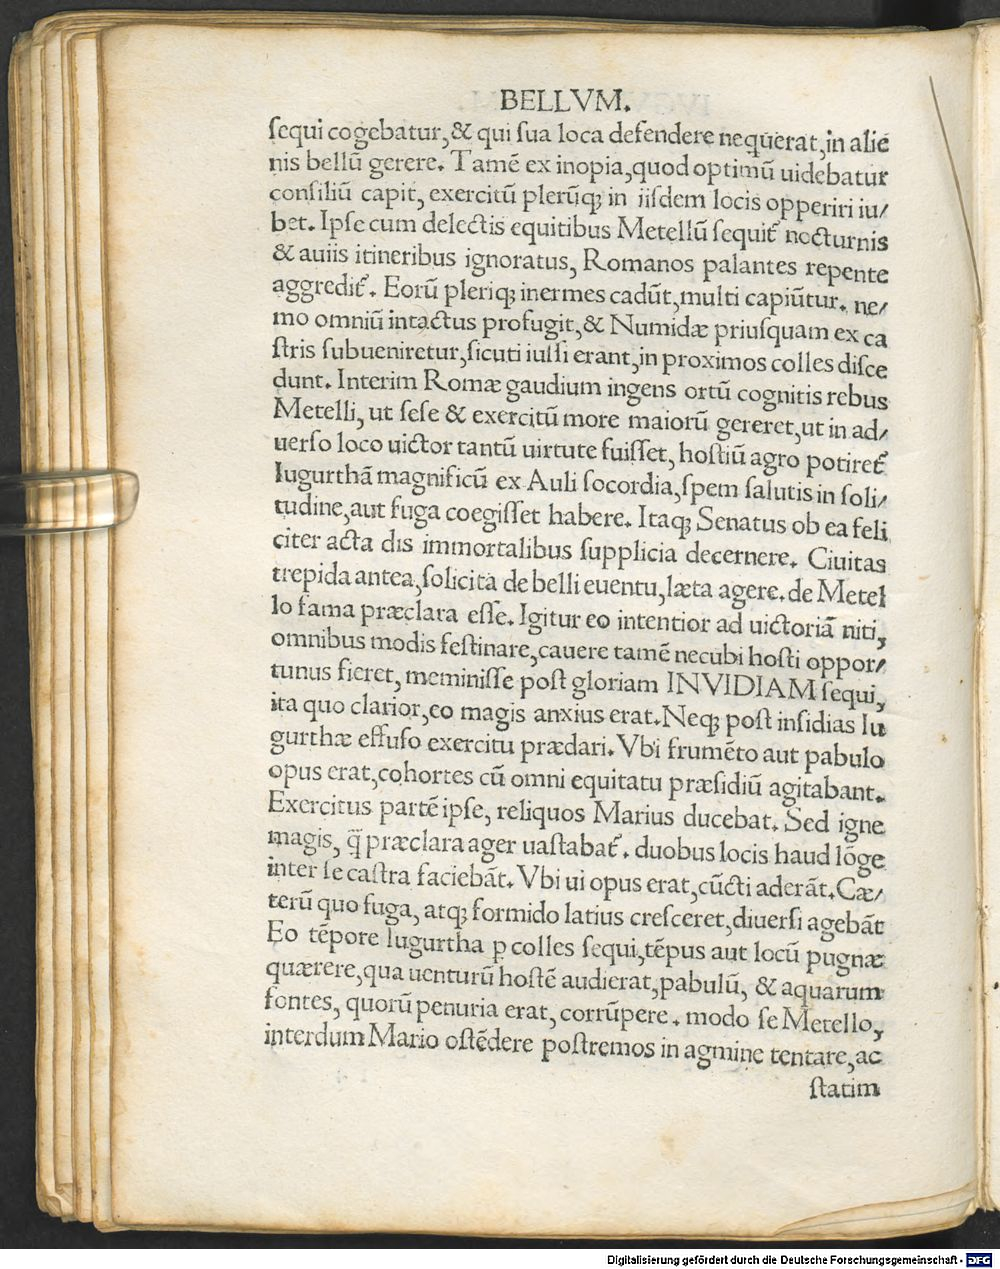 BELLVM.
ſequi cogebatur, & qui ſua loca defendere nequerat, in alie
nis bellū gerere. Tamē ex inopia, quod optimū uidebatur
conſiliū capit, exercitū plerūq; in iiſdem locis opperiri iu/
bet. Ipſe cum delectis equitibus Metellū ſequit᷑ nocturnis
& auiis itineribus ignoratus, Romanos palantes repente
aggredit᷑. Eorū pleriq; inermes cadūt, multi capiūtur. ne/
mo omniū intactus profugit, & Numidæ priuſquam ex ca
ſtris ſubueniretur, ſicuti iuſſi erant, in proximos colles diſce
dunt. Interim Romæ gaudium ingens ortū cognitis rebus
Metelli, ut ſeſe & exercitū more maiorū gereret, ut in ad/
uerſo loco uictor tantū uirtute fuiſſet, hoſtiū agro potiret᷑
Iugurthā magnificū ex Auli ſocordia, ſpem ſalutis in ſoli/
tudine, aut fuga coegiſſet habere. Itaq; Senatus ob ea feli
citer acta dis immortalibus ſupplicia decernere. Ciuitas
trepida antea, ſolicita de belli euentu, læta agere. de Metel
lo fama præclara eſſe. Igitur eo intentior ad uictoriā niti,
omnibus modis feſtinare, cauere tamē necubi hoſti oppor/
tunus fieret, meminiſſe poſt gloriam INVIDIAM ſequi,
ita quo clarior, eo magis anxius erat. Neq; poſt inſidias Iu
gurthæ effuſo exercitu prædari. Vbi frumēto aut pabulo
opus erat, cohortes cū omni equitatu præſidiū agitabant.
Exercitus partē ipſe, reliquos Marius ducebat. Sed igne
magis, q̃ præclara ager uaſtabat᷑. duobus locis haud lōge
inter ſe caſtra faciebāt. Vbi ui opus erat, cūcti aderāt. Cæ/
terū quo fuga, atq; formido latius creſceret, diuerſi agebāt
Eo tēpore Iugurtha ꝑ colles ſequi, tēpus aut locū pugnæ
quærere, qua uenturū hoſtē audierat, pabulū, & aquarum
fontes, quorū penuria erat, corrūpere. modo ſe Metello,
interdum Mario oſtēdere poſtremos in agmine tentare, ac
ſtatim
Digitalisierung gefördert durch die Deutsche Forschungsgemeinschaft - DFG